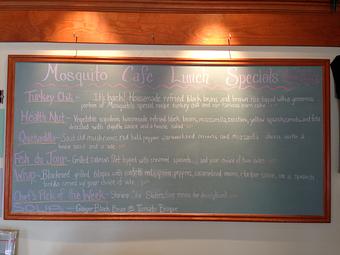 Mosquito Cafe Lunch Specials
Turkey Chili - It's back! Homemade refried black beans, and brown rice topped with a generous
portion of Mosquito's special recipe turkey chili and our famous corn cake
Health Nut - Vegetable napoleon, homemade refried black beans, mozzarella, zucchini, yellow squash, and feta
drizzled with chipotle sauce and a house salad
Quesadilla - Sautéed mushrooms, red bell pepper, caramelized onions, and mozzarella cheese, served w/
house salad and a side
Fish du Jour - Grilled salmon filet topped with and your choice of two sides
Wrap - Blackened grilled tilapia with red, green peppers, caramelized onions, chipotle sauce, in a spinach
tortilla served w/ your choice of side
Chef's Pick of the Week - Shrimp
SOUP - Ginger Black Bean & Tomato Bisque